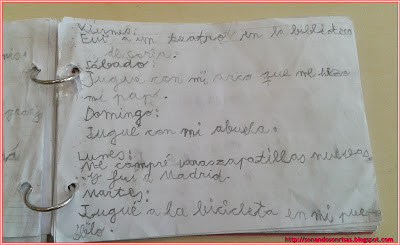 Viernes:
Fui a un teatro en la biblioteca
de soria.
Sábado:
Jugue con mi arco que me izo
mi papá.
Domingo:
Jugué con mi abuela.
Lunes:
Me compré unaszapatillas nuevas
y fui a Madrid.
Martes:
Jugué a la bicicleta en mi pue
blo.
http://sonandosonrisas.blogspot.com